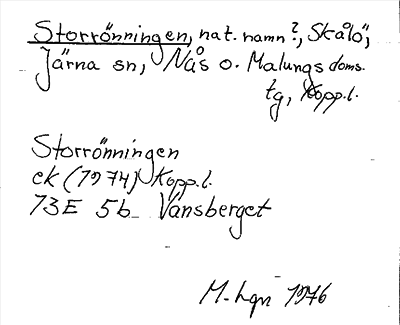 Storrönningen, nat. namn?, Skålö,
Järna sn, Nås o. Malungs doms.
tg, Kopp.l.
Storrönningen
ek (1974) Kopp.l.
13E 5b Vansberget
M-hgn 1976